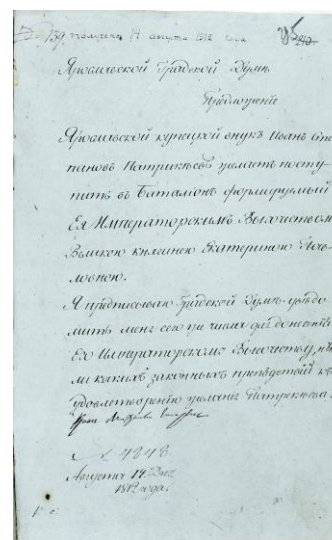 получено 14 августа 1812 года
Ярославской Градской Думѣ
Предложение
Ярославской купецкой внукъ Иванъ Сте
пановъ Патрикѣевъ желаетъ посту
пить въ Баталіонъ формируемый
Ея Императорскимъ Высочествомъ
Великою княгинею Екатериною Пав
ловною.
Я предписываю Градской Думѣ уведо
мить меня сего же числа для донесенія
Ея Императорскому Высочеству, нѣтъ
ли какихъ законныхъ препятствій къ
удовлетворенію желанія Патрикѣева.
№ 4848.
Августа 14 дня
1812 года.